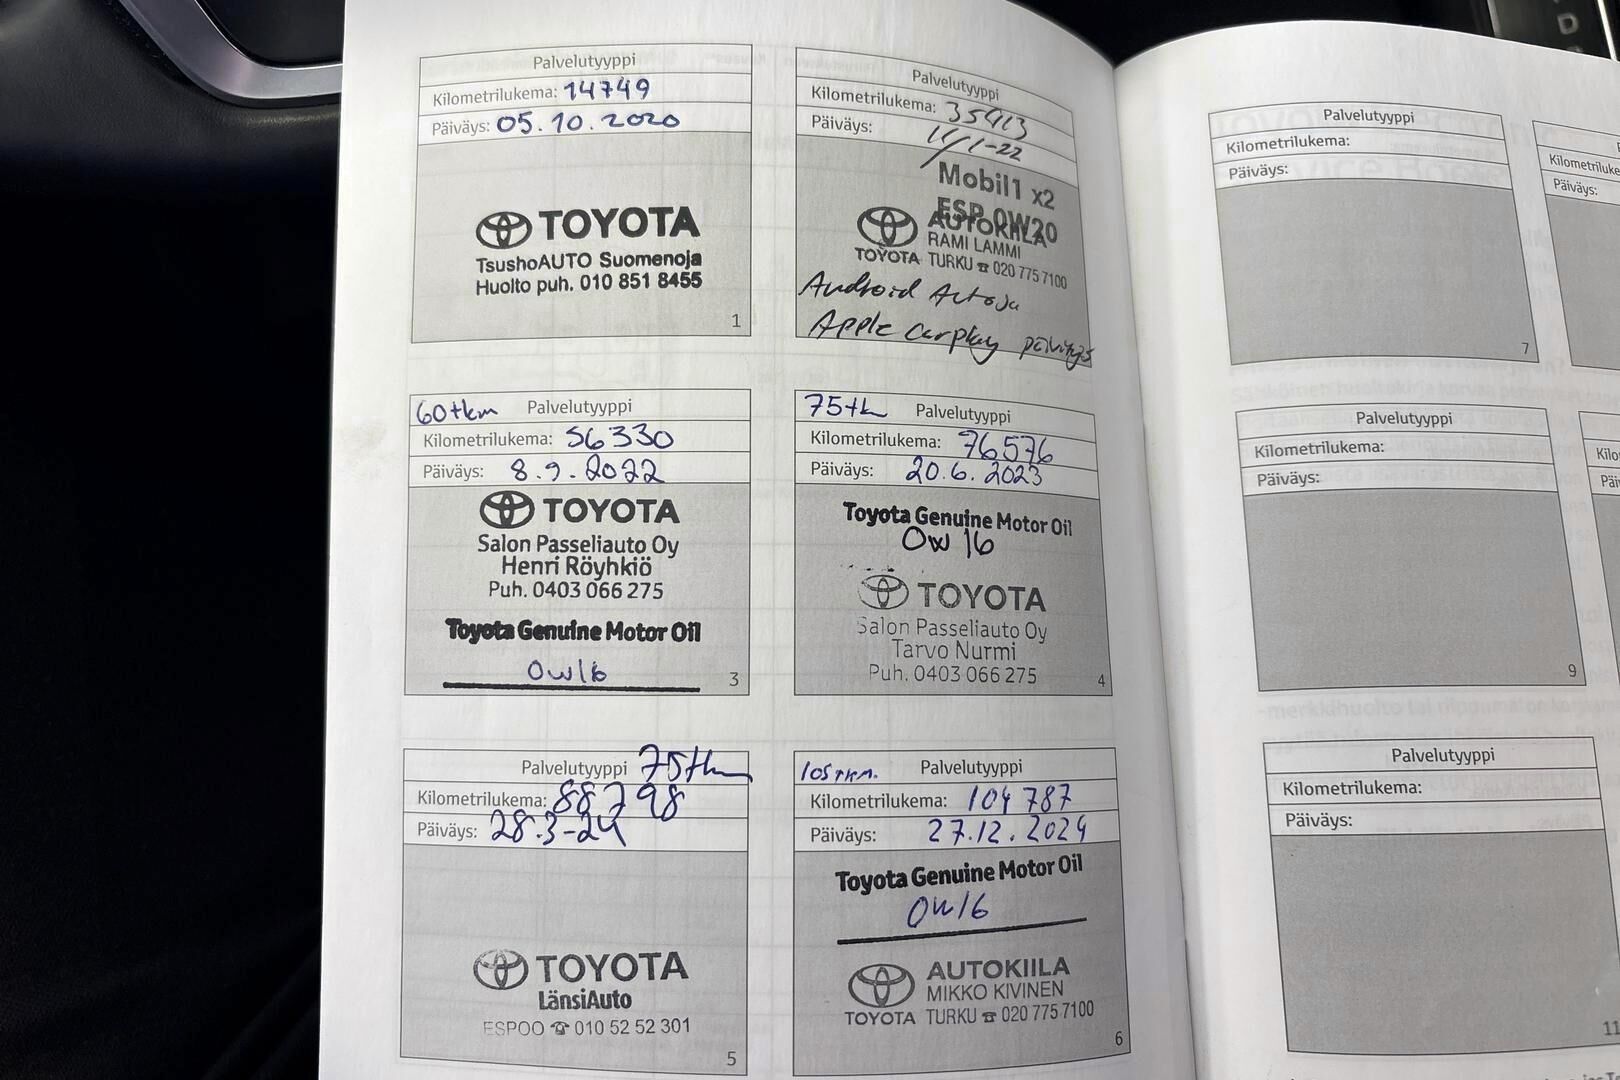 Palvelutyyppi
Kilometrilukema: 14749
Päiväys: 05.10.2020
TOYOTA
TsushoAUTO Suomenoja
Huolto puh. 010 851 8455
1
Palvelutyyppi
Kilometrilukema: 35413
Päiväys: 11/1-22
Mobil1 x2
ESP 0W20
AUTOKIILA
RAMI LAMMI
TOYOTA TURKU ☎ 020 775 7100
Android Auto ja
Apple Carplay päivitys
60tkm Palvelutyyppi
Kilometrilukema: 56330
Päiväys: 8.9.2022
TOYOTA
Salon Passeliauto Oy
Henri Röyhkiö
Puh. 0403 066 275
Toyota Genuine Motor Oil
0w16
3
75tk Palvelutyyppi
Kilometrilukema: 76576
Päiväys: 20.6.2023
Toyota Genuine Motor Oil
0w 16
TOYOTA
Salon Passeliauto Oy
Tarvo Nurmi
Puh. 0403 066 275
4
Palvelutyyppi 75tkm
Kilometrilukema: 88798
Päiväys: 28.3-24
TOYOTA
LänsiAuto
ESPOO ☎ 010 52 52 301
5
105tkm. Palvelutyyppi
Kilometrilukema: 104 787
Päiväys: 27.12.2024
Toyota Genuine Motor Oil
0w16
AUTOKIILA
MIKKO KIVINEN
TOYOTA TURKU ☎ 020 775 7100
6
Palvelutyyppi
Kilometrilukema:
Päiväys:
7
Kilometriluke
Päiväys:
Palvelutyyppi
Kilometrilukema:
Päiväys:
9
Kilo
Päi
Palvelutyyppi
Kilometrilukema:
Päiväys:
11
D